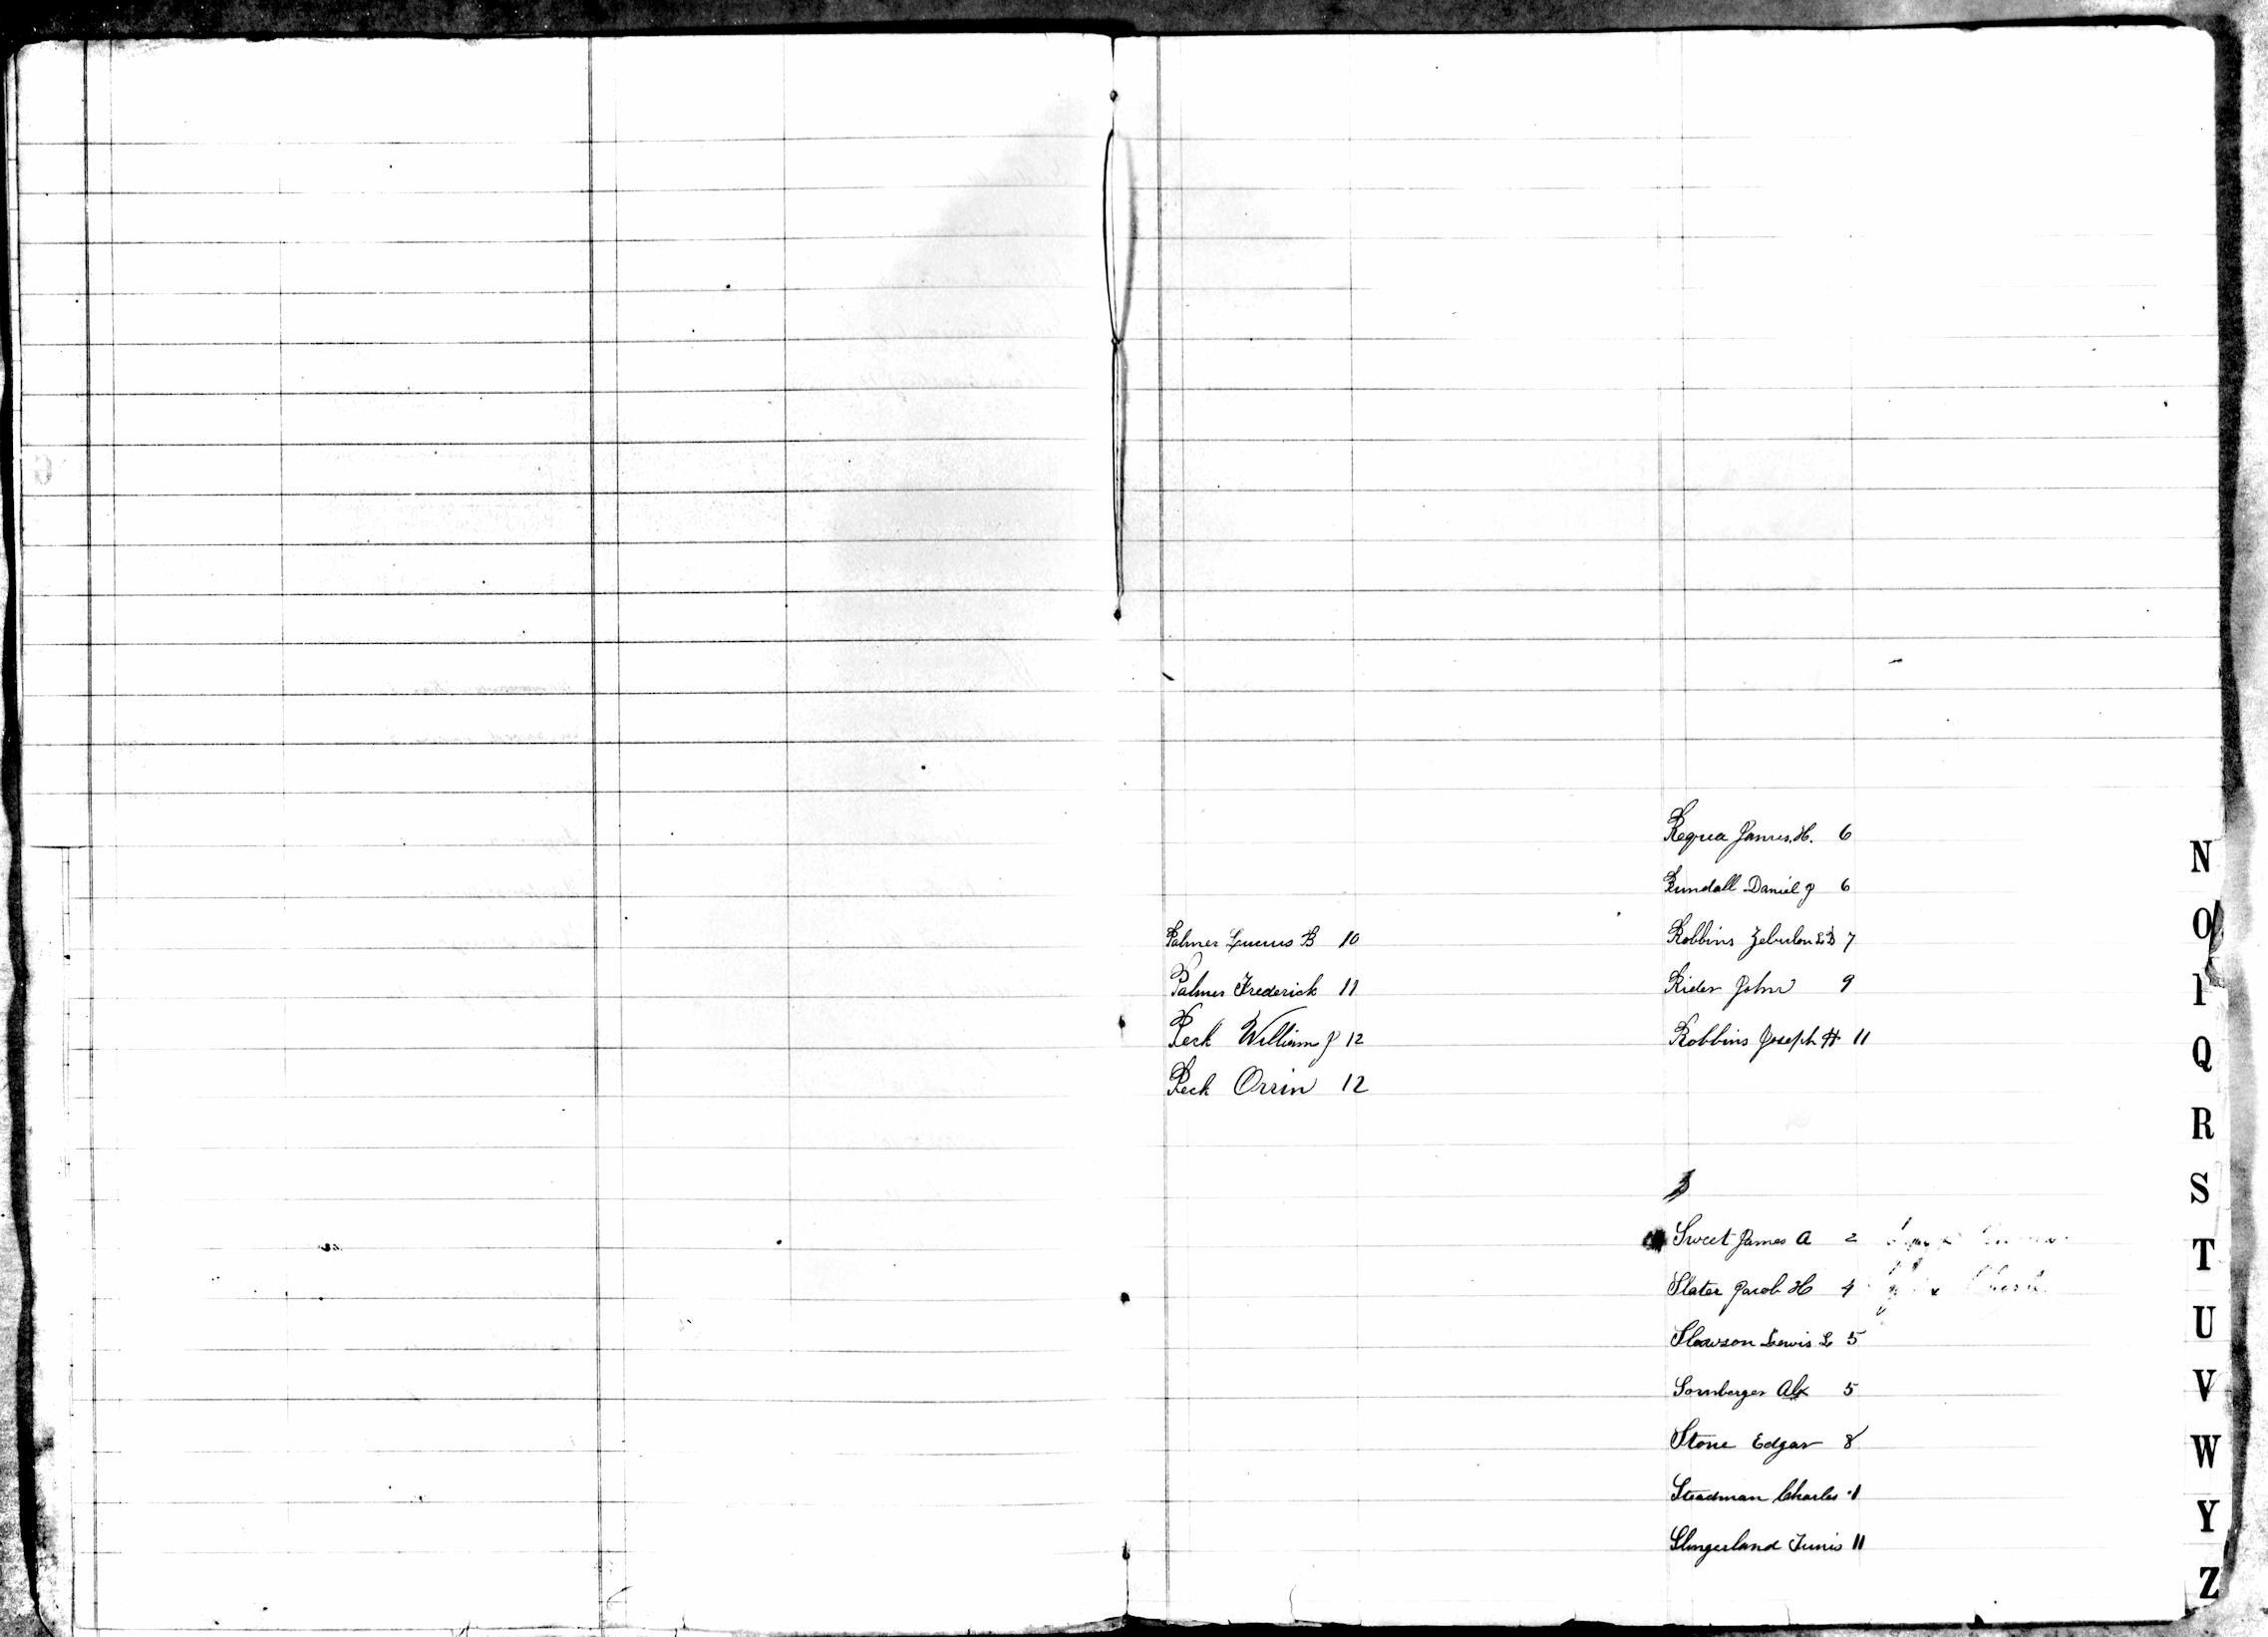 Palmer Lucius B 10
Palmer Frederick 11
Peck William J 12
Peck Orrin 12
Requa James. H. 6
Rundall Daniel J 6
Robbins Zebulon 7
Rider John 9
Robbins Joseph H 11
S
Sweet James A 2
Slater Jacob H 4
Slawson Lewis L 5
Sornberger Alx 5
Stone Edgar 8
Steadman Charles 11
Slingerland Tunis 11
N
O
Q
R
S
T
U
V
W
Y
Z